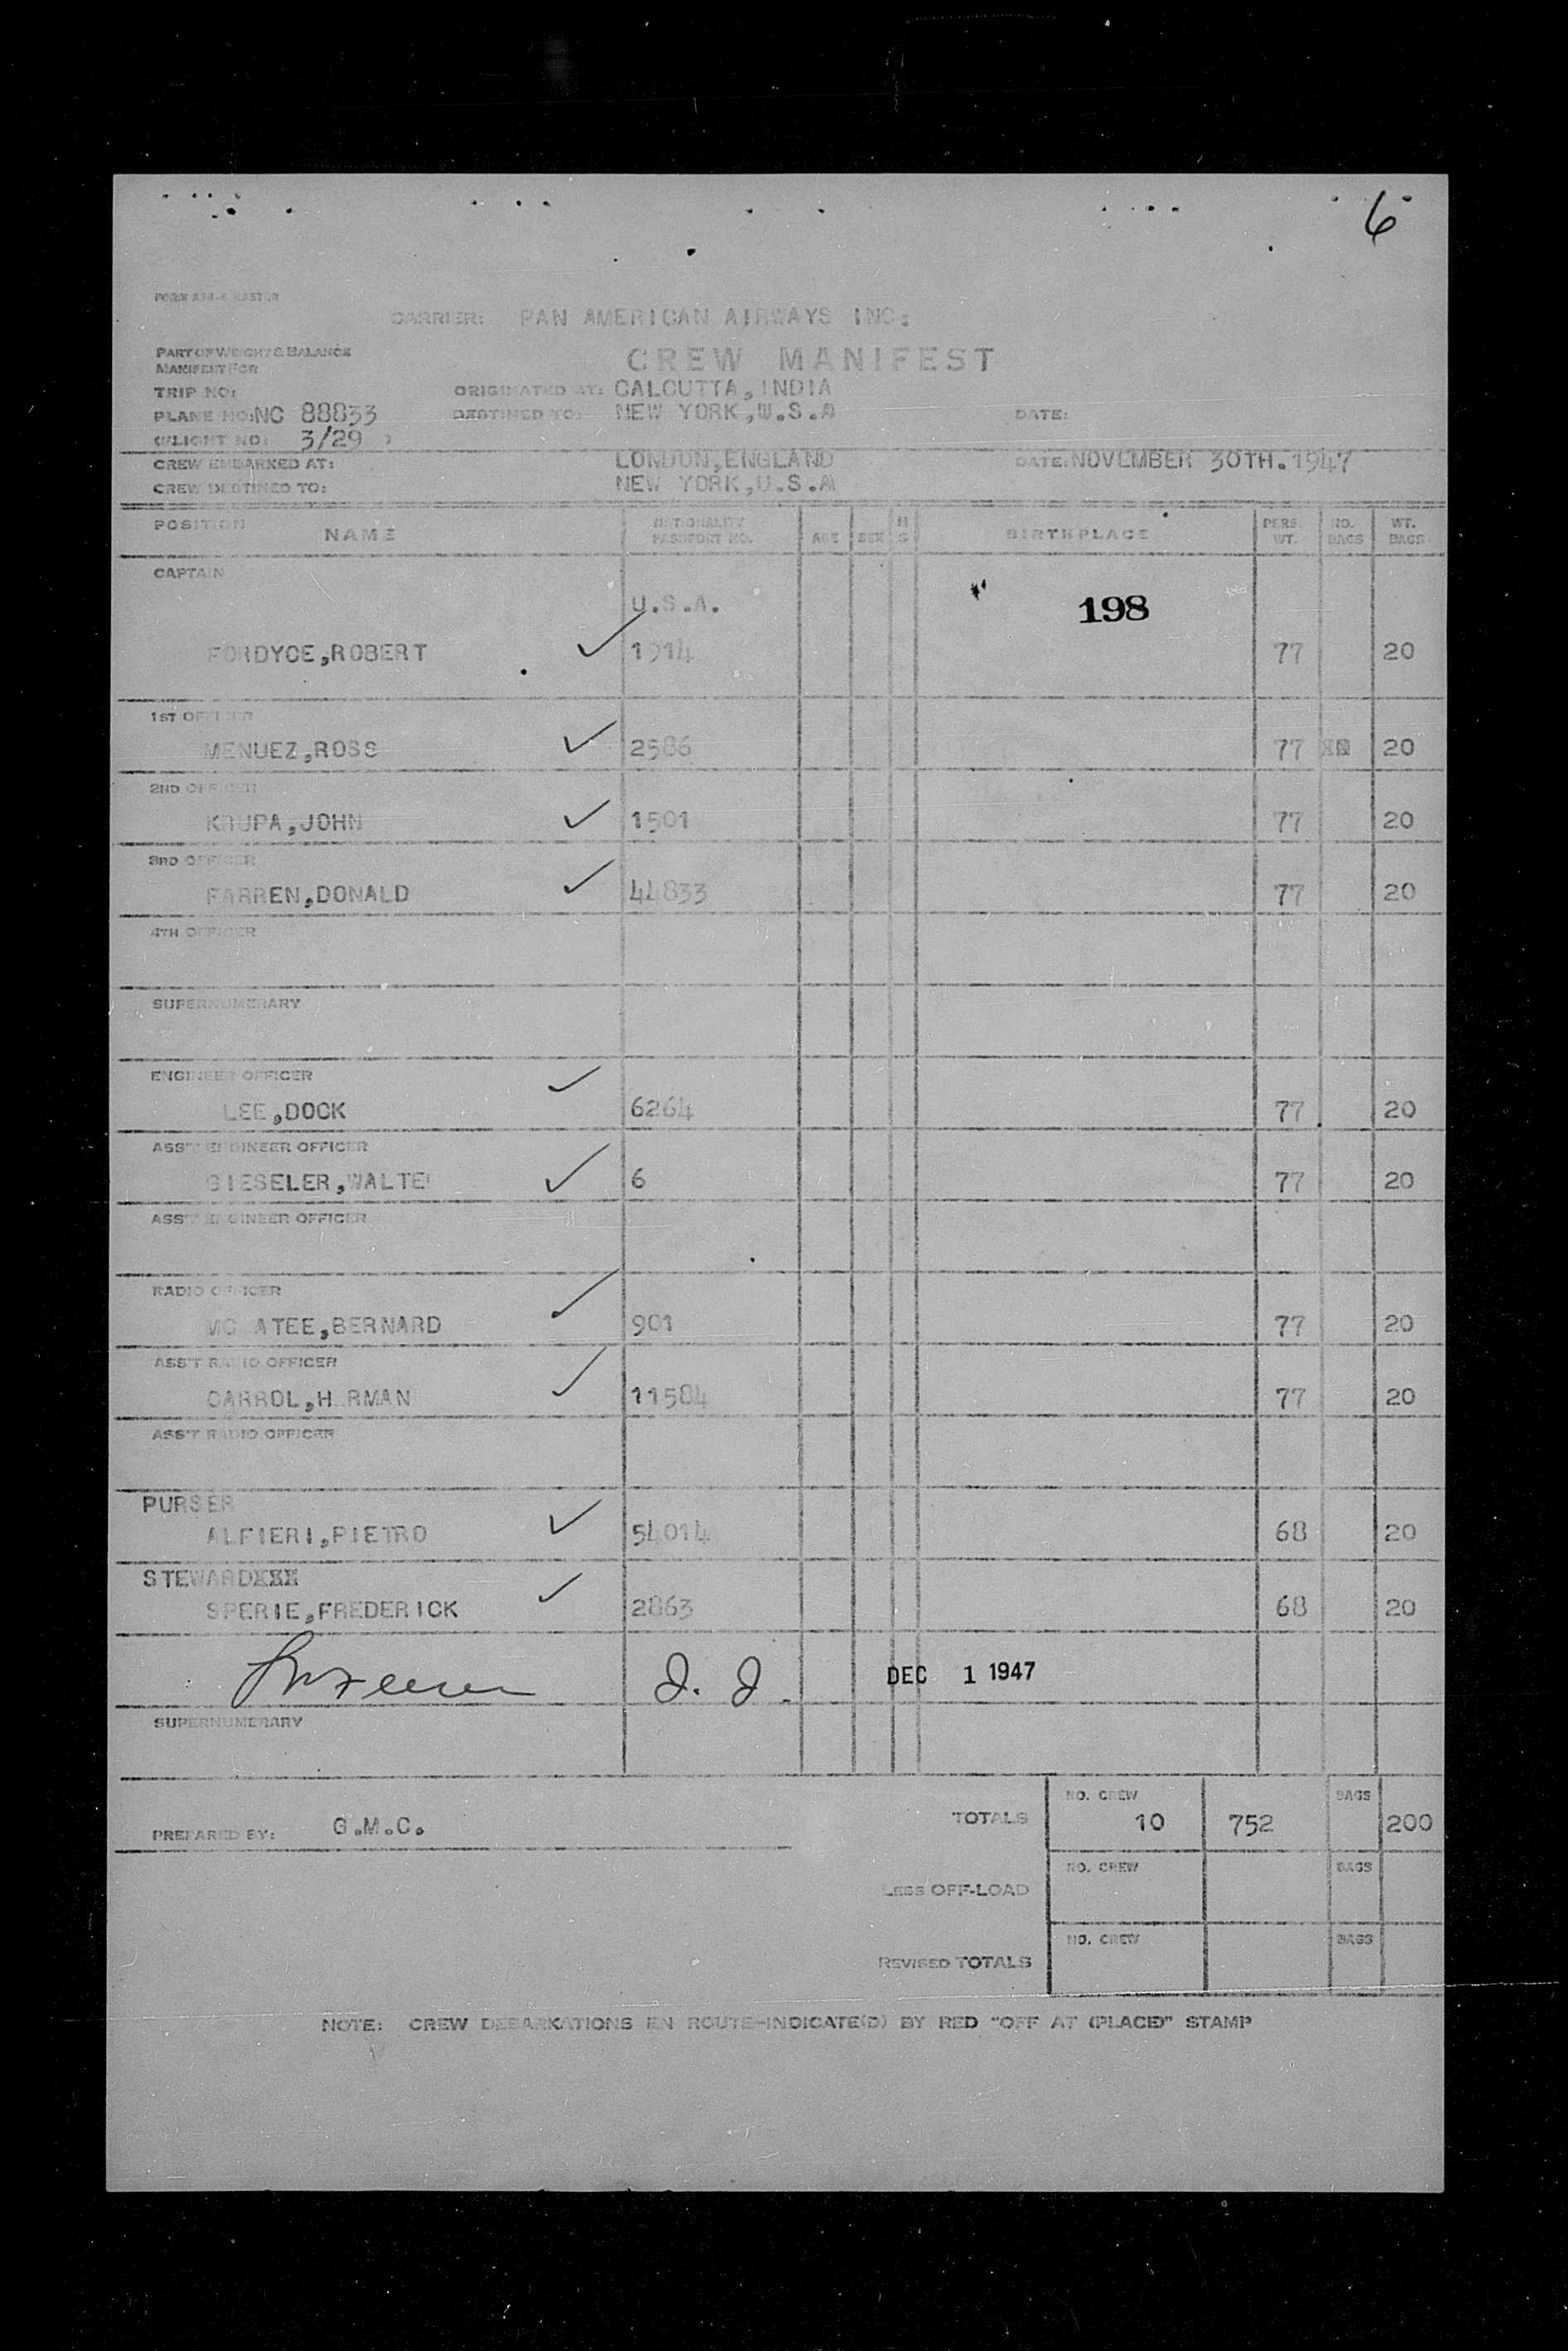 6
CARRIER: PAN AMERICAN AIRWAYS INC:
PART OF WEIGHT & BALANCE
MANIFEST FOR
CREW MANIFEST
TRIP NO: ORIGINATED AT: CALCUTTA, INDIA
PLANE NO: NC 88833 DESTINED TO: NEW YORK, U.S.A DATE:
(FLIGHT NO: 3/29 )
CREW EMBARKED AT: LONDON, ENGLAND DATE: NOVEMBER 30TH. 1947
CREW DESTINED TO: NEW YORK, U.S.A
POSITION NAME NATIONALITY PASSPORT NO. AGE SEX M S BIRTHPLACE PERS. WT. NO. BAGS WT. BAGS
CAPTAIN
U.S.A. 198
FORDYCE, ROBERT 1914 77 20
1ST OFFICER
MENUEZ, ROSS 2586 77 20
2ND OFFICER
KRUPA, JOHN 1501 77 20
3RD OFFICER
FARREN, DONALD 44833 77 20
4TH OFFICER
SUPERNUMERARY
ENGINEER OFFICER
LEE, DOCK 6264 77 20
ASS'T ENGINEER OFFICER
GIESELER, WALTE 6 77 20
ASS'T ENGINEER OFFICER
RADIO OFFICER
MC ATEE, BERNARD 901 77 20
ASS'T RADIO OFFICER
CARROL, H RMAN 11584 77 20
ASS'T RADIO OFFICER
PURSER
ALFIERI, PIETRO 54014 68 20
STEWARDXXX
SPERIE, FREDERICK 2863 68 20
DEC 1 1947
SUPERNUMERARY
NO. CREW BAGS
PREPARED BY: G.M.C. TOTALS 10 752 200
NO. CREW BAGS
LESS OFF-LOAD
NO. CREW BAGS
REVISED TOTALS
NOTE: CREW DEBARKATIONS EN ROUTE-INDICATE(D) BY RED "OFF AT (PLACE)" STAMP